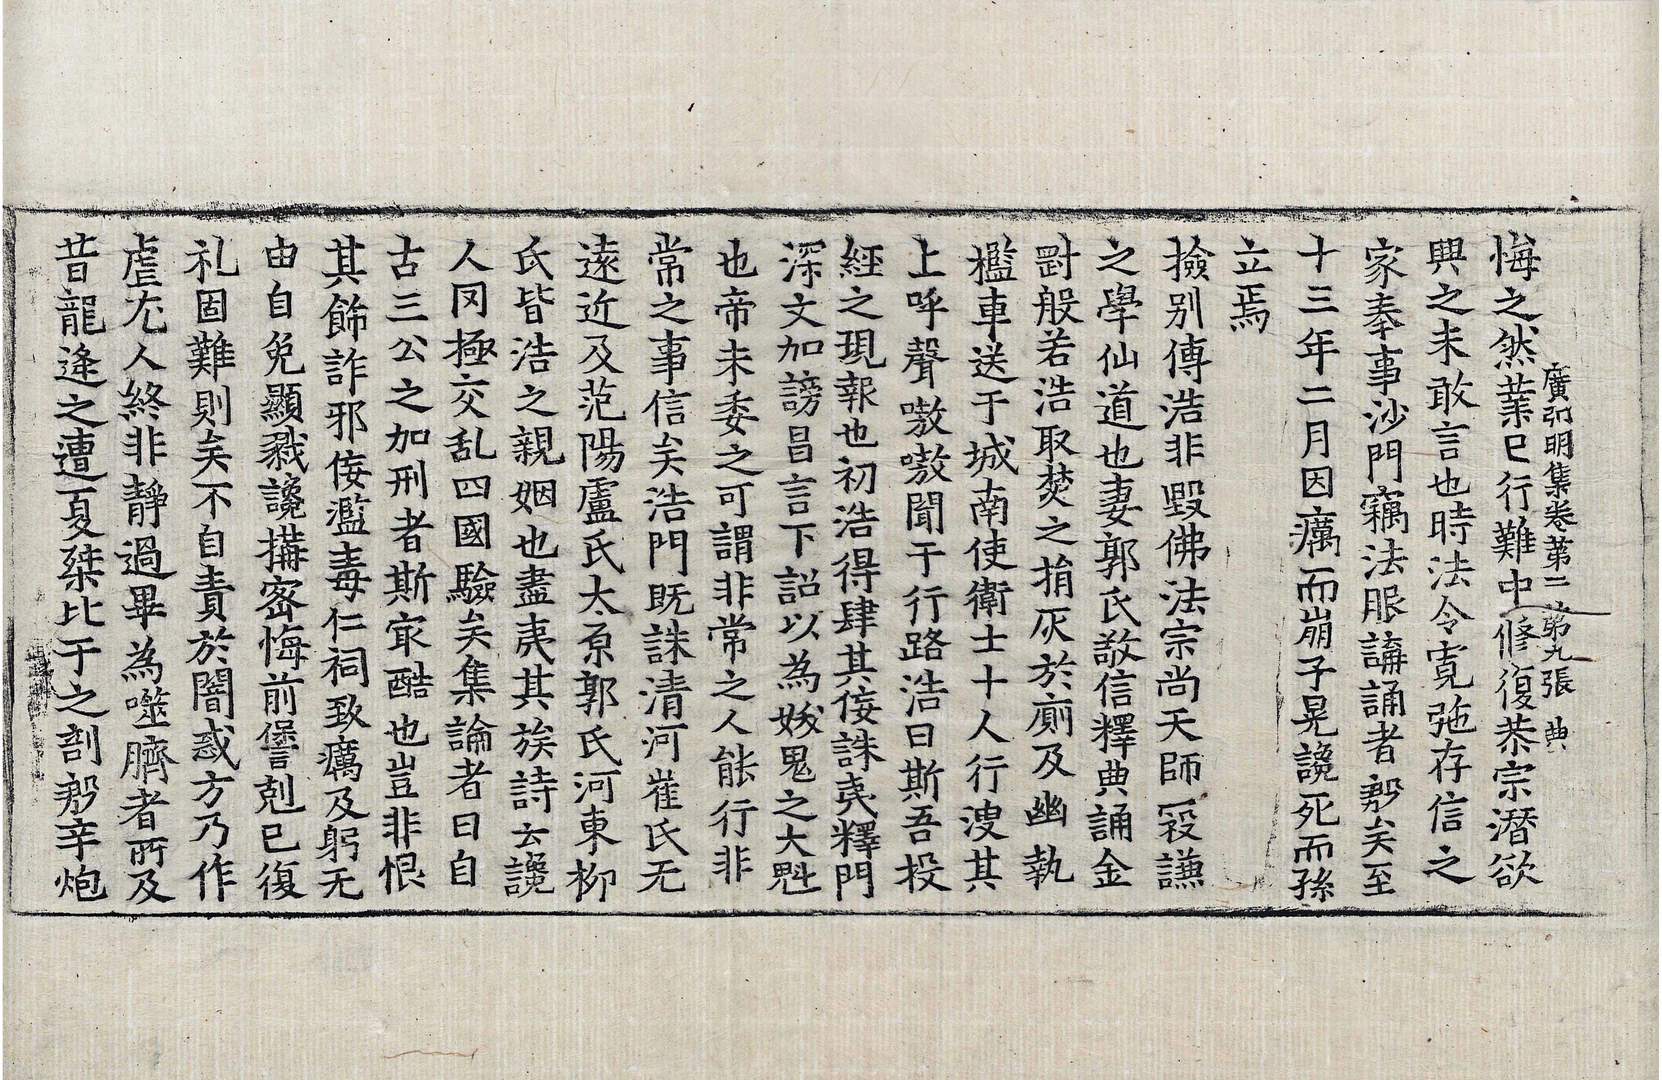 悔之然業已行難中修復恭宗潛欲
廣弘明集卷第二 第九張 典
興之未敢言也時法令寬弛存信之
家奉事沙門竊法服講誦者尠矣至
十三年二月因癘而崩子晃讒死而孫
立焉
撿別傳浩非毀佛法宗尚天師寇謙
之學仙道也妻郭氏敬信釋典誦金
剛般若浩取焚之捐灰於廁及幽執
檻車送于城南使衛士十人行溲其
上呼聲嗷嗷聞于行路浩曰斯吾投
經之現報也初浩得肆其佞誅夷釋門
深文加謗昌言下詔以為妭鬼之大魁
也帝未委之可謂非常之人能行非
常之事信矣浩門既誅清河崔氏无
遠近及范陽盧氏太原郭氏河東柳
氏皆浩之親姻也盡夷其族詩云讒
人罔極交乱四國驗矣集論者曰自
古三公之加刑者斯寂酷也豈非恨
其飾詐邪佞濫毒仁祠致癘及躬无
由自免顯戮讒搆密悔前𠎝剋己復
礼固難則矣不自責於闇惑方乃作
虐尤人終非靜過畢為噬臍者所及
昔龍逄之遭夏桀比干之剖尠辛炮